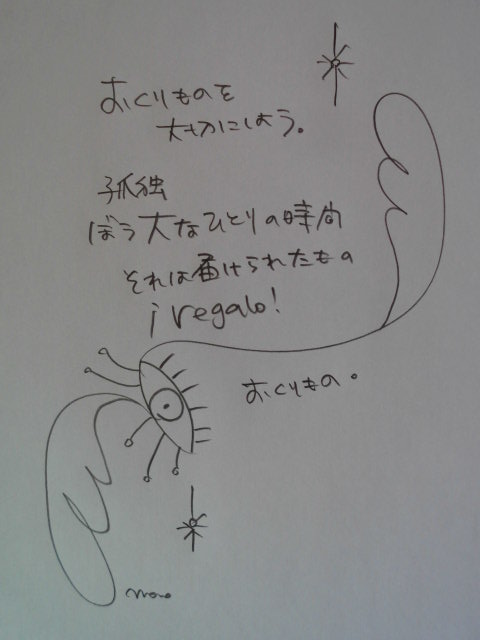 おくりものを
大切にしよう。
孤独
ぼう大なひとりの時間
それは届けられたもの
¡regalo!
おくりもの。